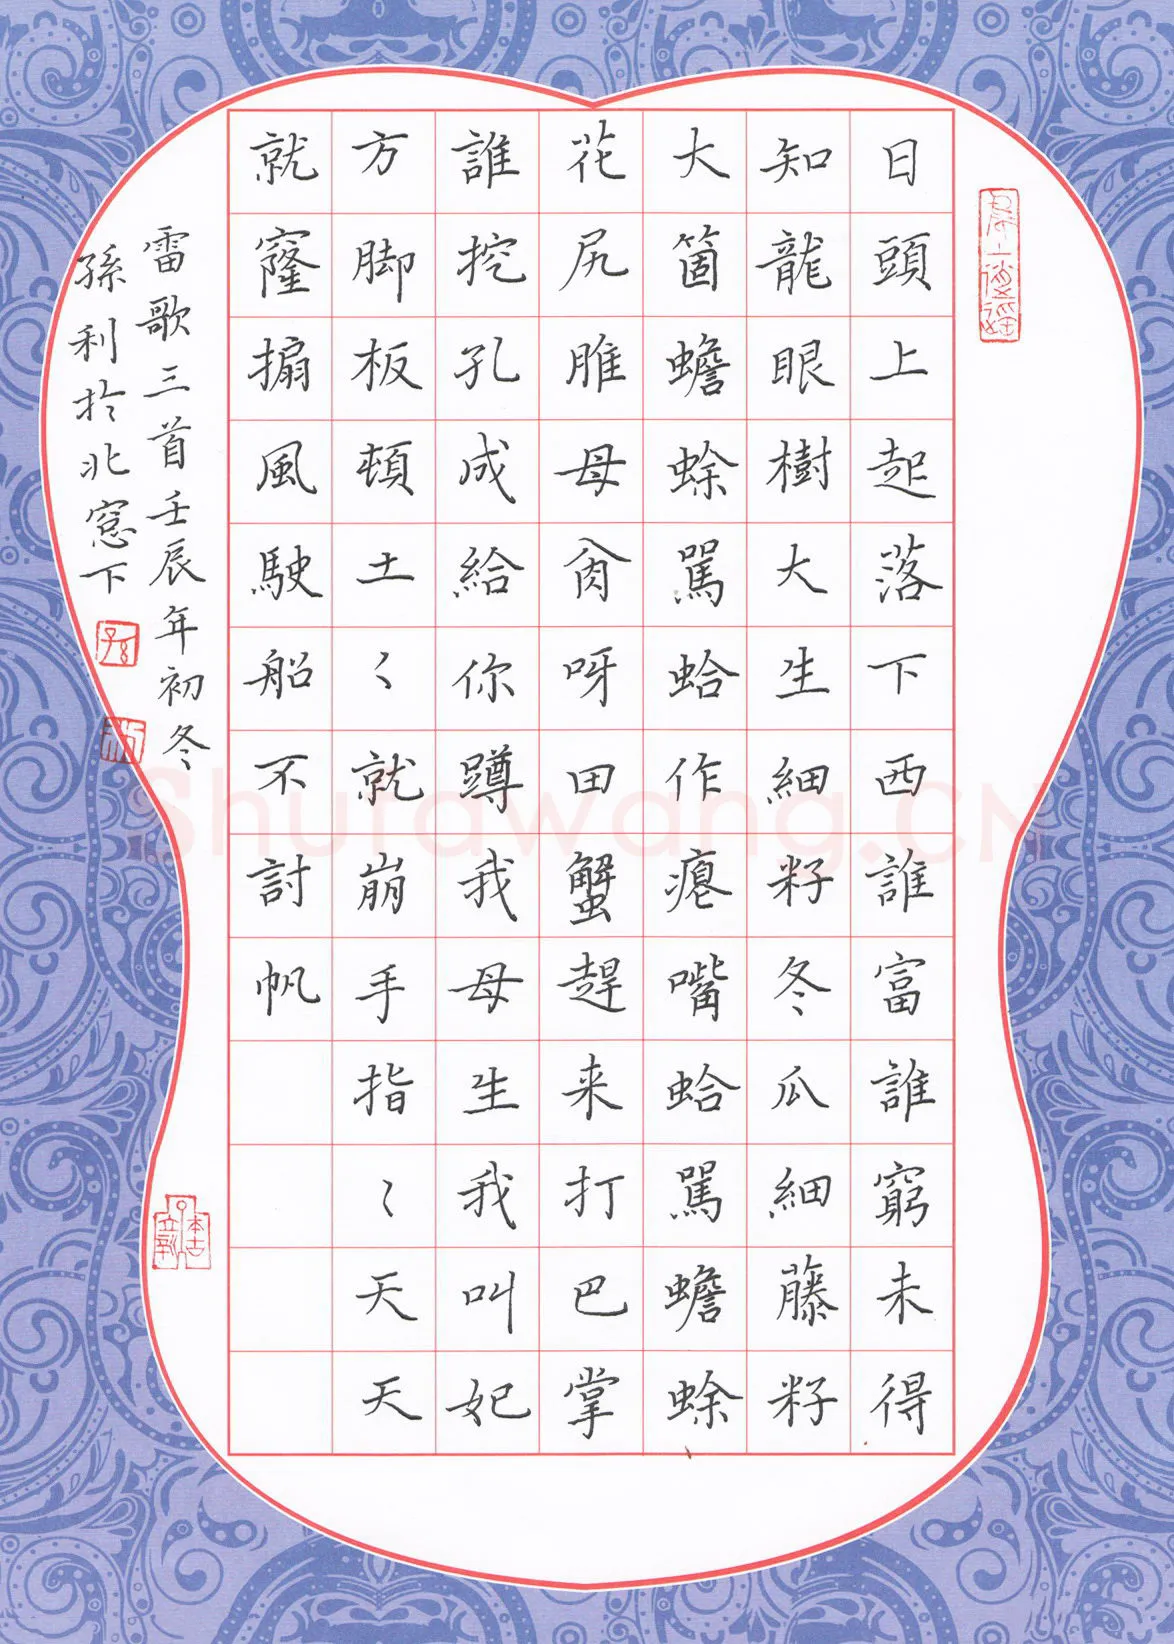 日頭上起落下西誰富誰窮未得
知龍眼樹大生細籽冬瓜細藤籽
大箇蟾蜍罵蛤作瘪嘴蛤罵蟾蜍
花尻脽母肏呀田蟹趕来打巴掌
誰挖孔成給你蹲我母生我叫妃
方脚板頓土〻就崩手指〻天天
就窿搧風駛船不討帆
雷歌三首壬辰年初冬
孫利於北窓下
Shufawang.CN